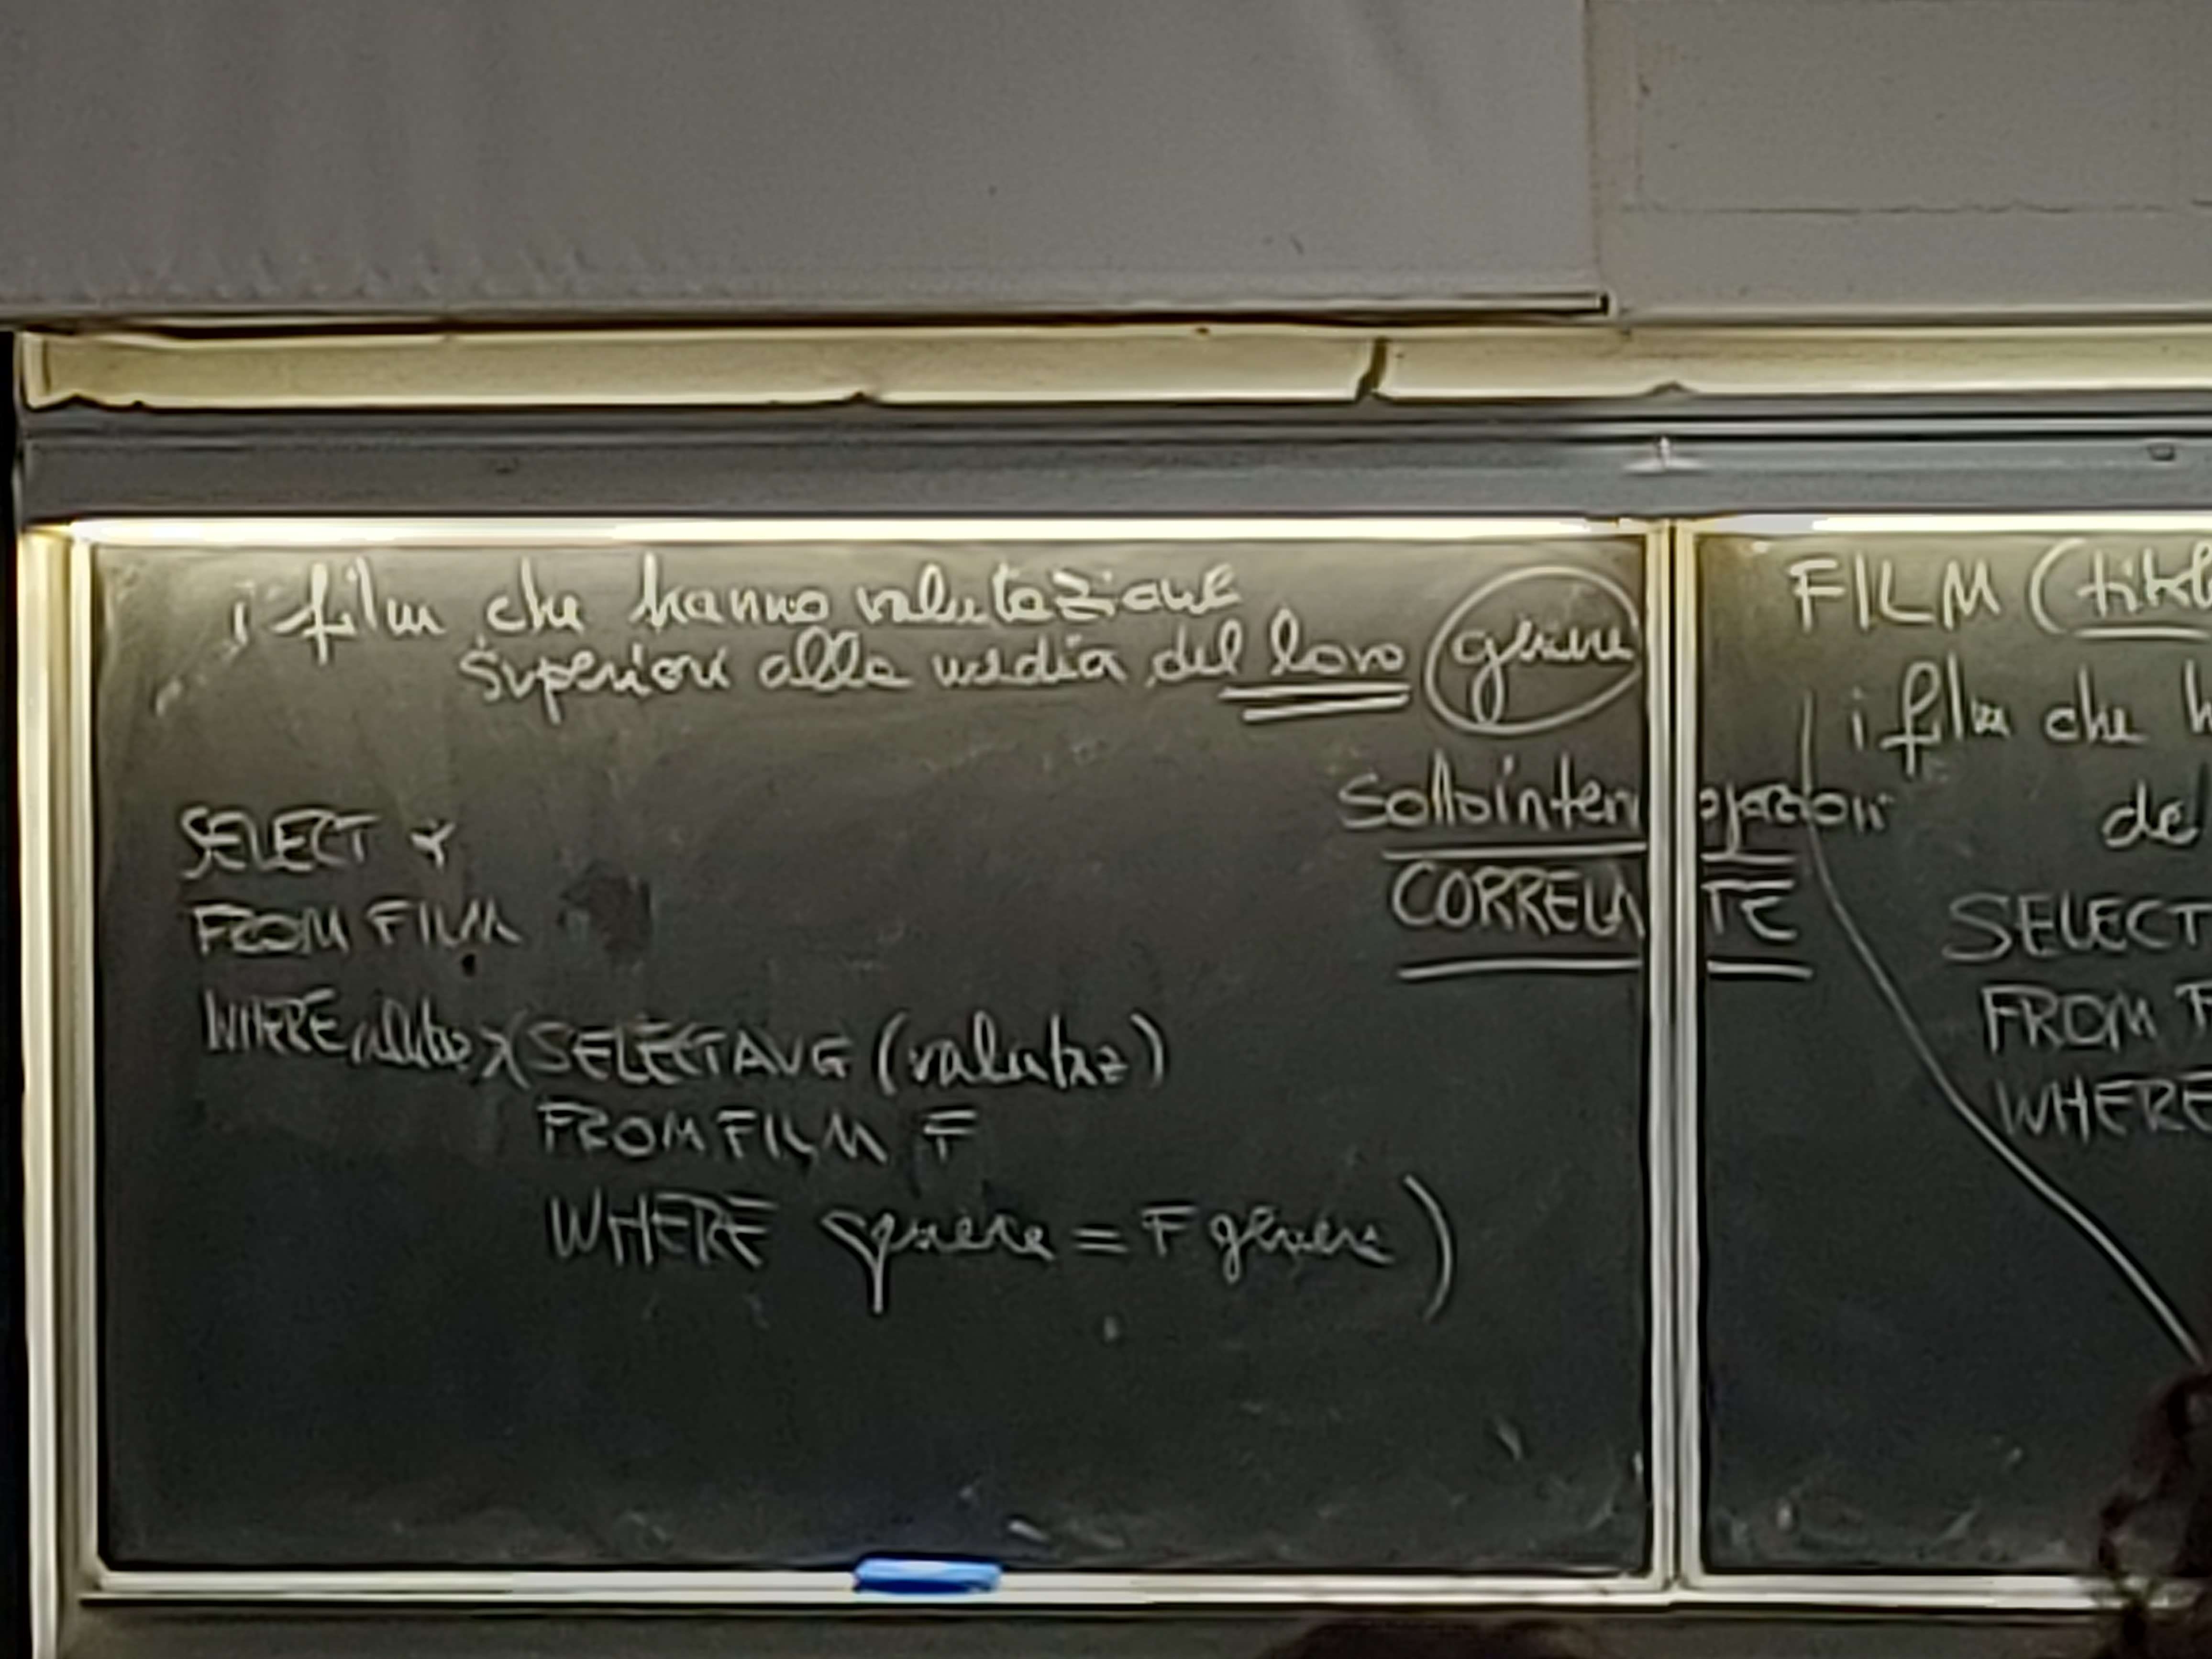 i film che hanno valutazione
superiore alla media del loro genere
Sottointerrogazioni
CORRELATE
SELECT *
FROM FILM
WHERE valutaz > (SELECT AVG (valutaz)
FROM FILM F
WHERE genere = F genere )
FILM (titol
i film che h
del
SELECT
FROM F
WHERE